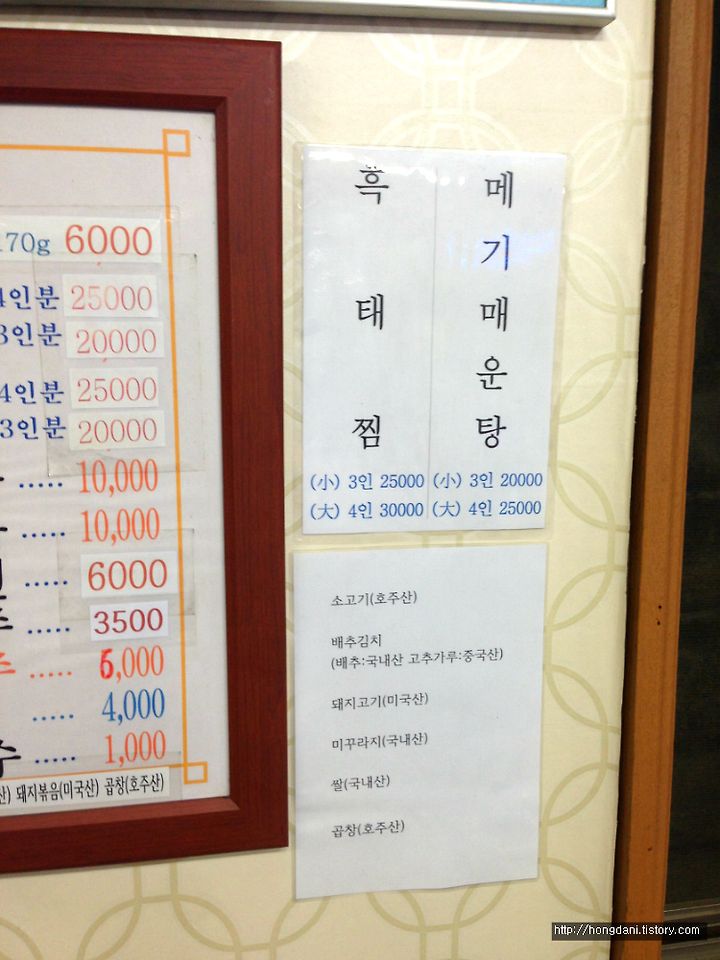 170g 6000
4인분 25000
3인분 20000
4인분 25000
3인분 20000
..... 10,000
..... 10,000
..... 6000
..... 3500
..... 6,000
..... 4,000
..... 1,000
돼지볶음(미국산) 곱창(호주산)
흑태찜
(小) 3인 25000
(大) 4인 30000
메기매운탕
(小) 3인 20000
(大) 4인 25000
소고기(호주산)
배추김치
(배추:국내산 고추가루:중국산)
돼지고기(미국산)
미꾸라지(국내산)
쌀(국내산)
곱창(호주산)
http://hongdani.tistory.com